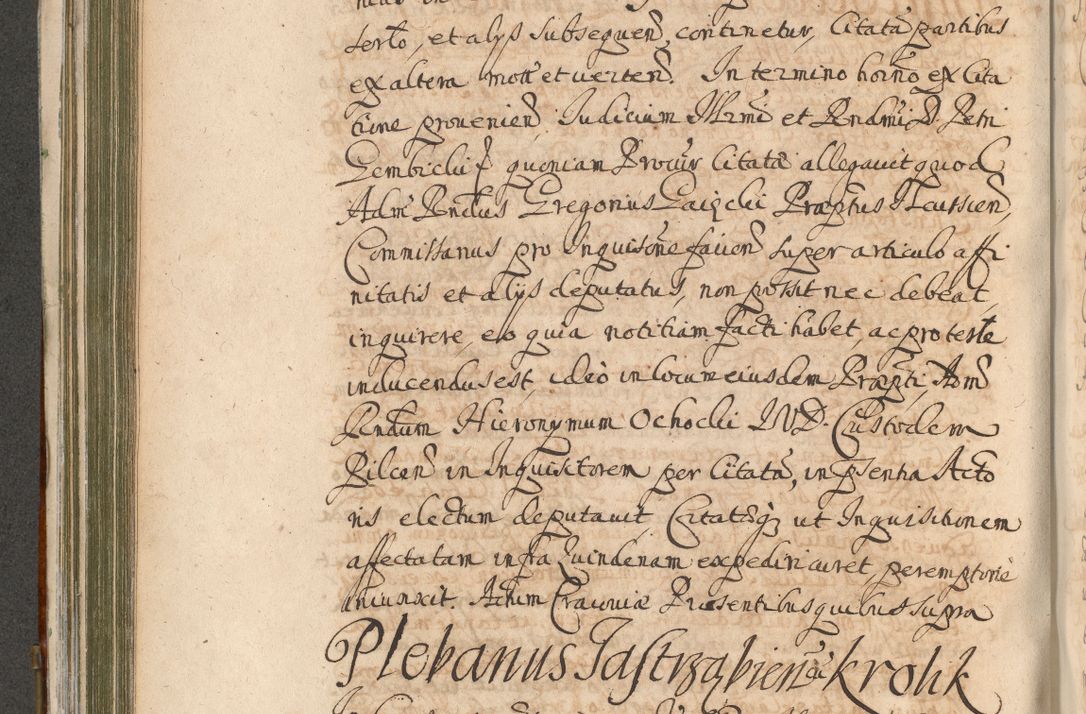 serto, et alys subsequen̄, continetur, Citatā partibus
ex altera mott et verten̄. In termino horno ex Cita
tione prouenien̄, Iudicium Illrmi et Rndmi D. Petri
Gembicki quoniam Procur Citatā allegauit quod
Adm Rndus Gregorius Præptus
Commissarius pro Inquisōne faucen̄ super articulo affi
nitatis et alys deputatus, non possit nec debeat
inquirere, eo quia notitiam facti habet, ac pro teste
inducendus est, ideo in locum eiusdem Præpti, Adm
Rndum Hieronymum Ochocki IVD. Custodem
Pilcen̄ in Inquisitorem per Citatā, in pſentia Acto
ris electum deputauit, Citatāq ut Inquisitionem
affectatam infra Quindenam expediri curet, peremptorie
iniunxit. Actum Cracouiæ Præsentibus quibus supra
Plebanus Jastrząbien̄ cū Krolik